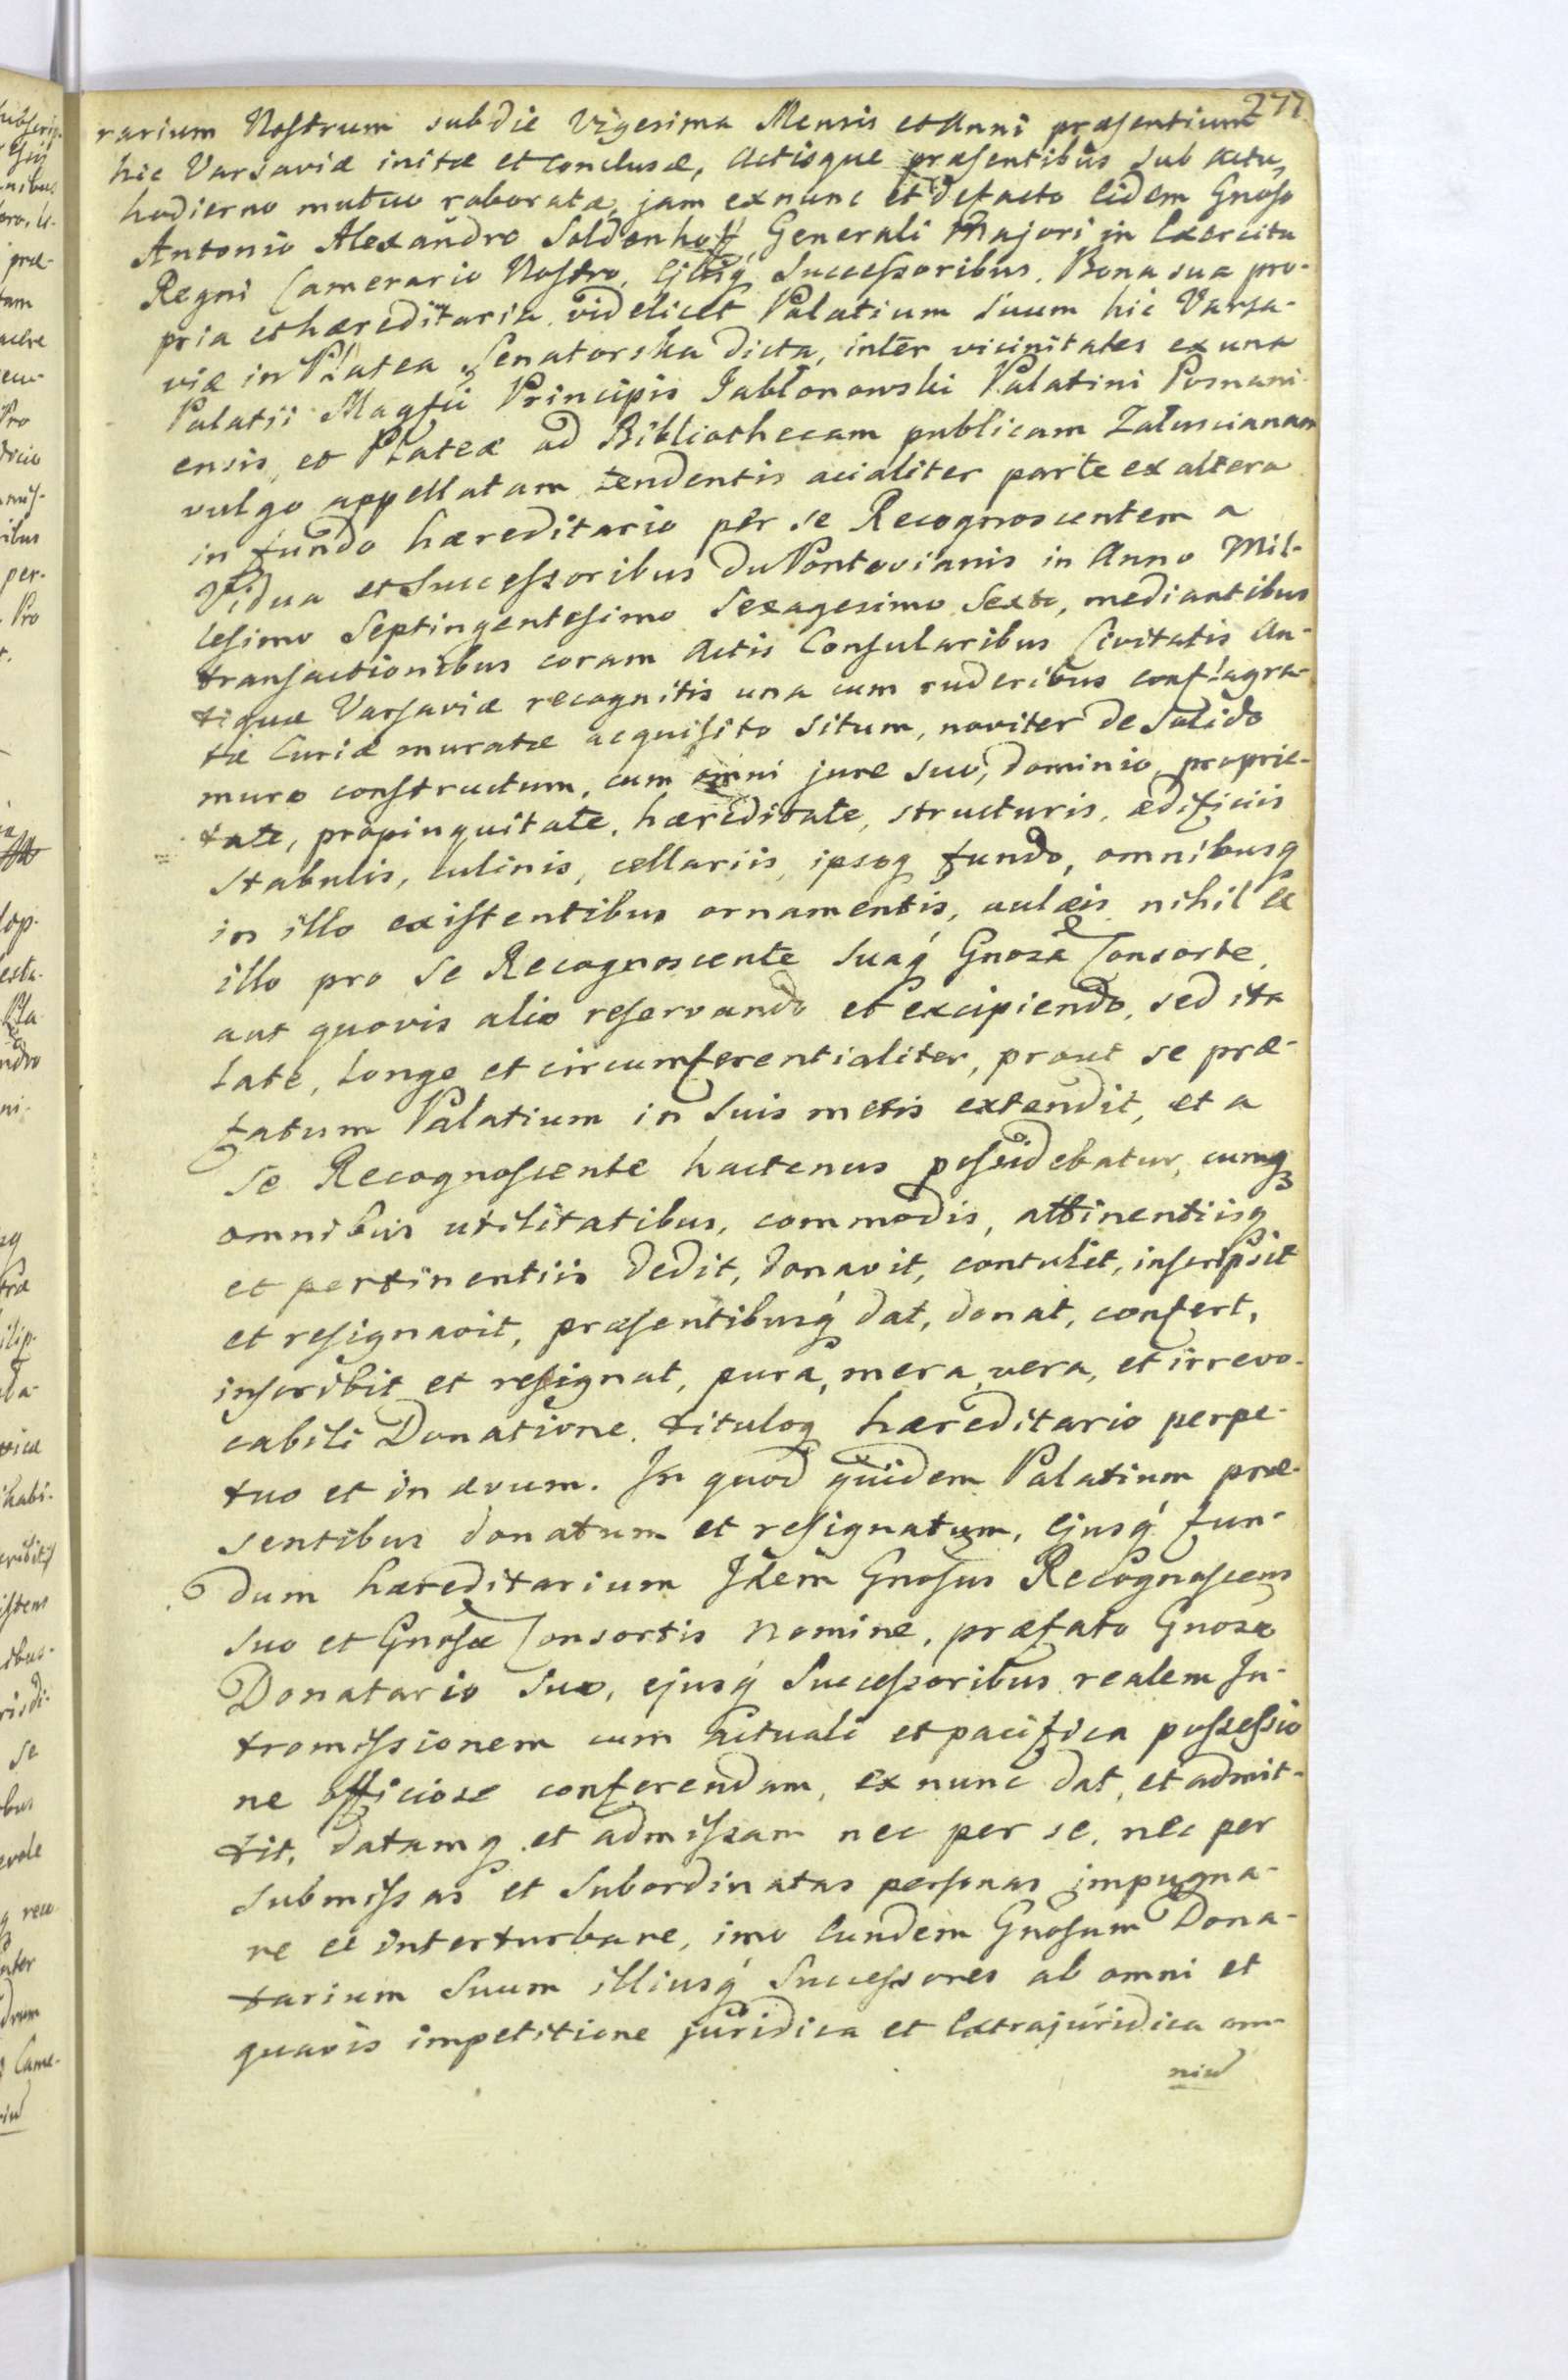 277.
rarium Nostrum sub die Vigesima Mensis et Anni præsentium
hic Varsaviæ initæ et conclusæ, Actisque præsentibus sub actu,
hodierno mutuo roboratæ, jam exnunc et defacto Eidem Gnoso
Antonio Alexandro Soldenhoff, Generali Majori in Exercitu
Regni Camerario Nostro, Ejusq́ Successoribus. Bona sua pro-
pria et hæreditaria, videlicet Palatium Suum hic Varsa-
viæ in Platea Senatorska dicta, inter vicinitates ex una
Palatii Magfci Principis Jabłonowski Palatini Posnani-
ensis, et Plateæ ad Bibliothecam publicam Załuscianam
vulgo appellatam tendentis acialiter parte ex altera
in fundo hæreditario per se Recognoscentem a
Vidua et Successoribus DuPontovianis in Anno Mil-
lesimo Septingentesimo Sexagesimo Sexto, mediantibus
transactionibus coram Actis Consularibus Civitatis An-
tiquæ Varsaviæ recognitis una cum ruderibus conflagra-
tæ Curiæ muratæ acquisito situm, noviter de Solido
muro constructum, cum omni jure suo, dominio, proprie-
tate, propinquitate, hæreditate, structuris, ædificiis
Stabulis, Culinis, cellariis, ipsoq fundo, omnibusq
in illo existentibus ornamentis, aulæis, nihil ex
illo pro se Recognoscente Suaq́ Gnosa Consorte,
aut quovis alio reservando et excipiendo, sed ita
Late, Longe et circumferentialiter, prout se præ-
fatum Palatium in Suis metis extendit, et a
Se Recognoscente hactenus possidebatur, cumq
omnibus utilitatibus, commodis, attinentiisq
et pertinentiis dedit, donavit, contulit, inscripsit
et resignavit, præsentibusq́ dat, donat, confert,
inscribit et resignat, pura, mera, vera, et irrevo-
cabili Donatione, tituloq hæreditario perpe-
tuo et in ævum. In quod quidem Palatium præ-
sentibus donatum et resignatum, Ejusq́ fun-
dum hæreditarium Idem Gnosus Recognoscens
Suo et Gnosæ Consortis nomine, præfato Gnoso
Donatario Suo, ejusq́ Successoribus realem In-
tromissionem cum actuali et pacifica possessio
ne officiose conferendam, ex nunc dat, et admit-
tit, datamq et admissam nec per se, nec per
Submissas et Subordinatas personas impugna-
re et interturbare, imo Eundem Gnosum Dona-
tarium Suum illiusq́ Successores ab omni et
quavis impetitione juridica et Extrajuridica om-
niu